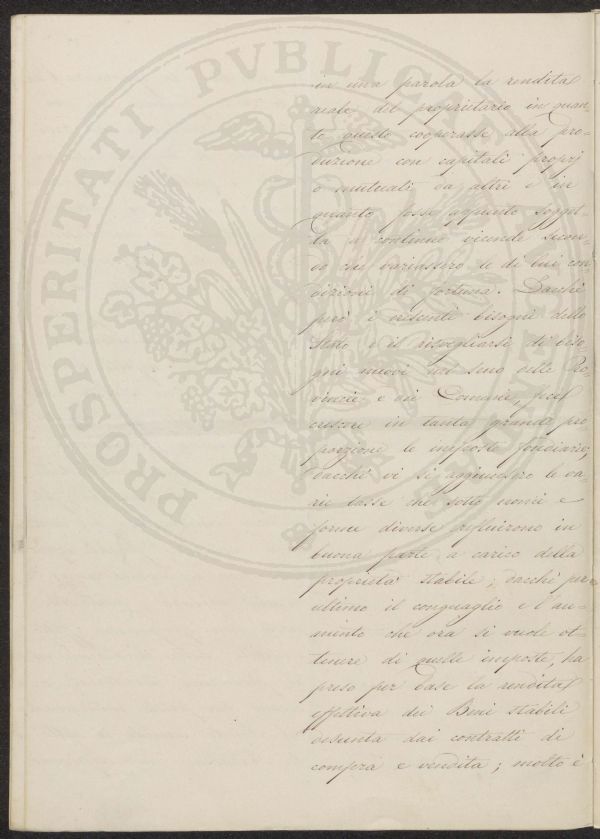 in una parola la rendita
reale del proprietario in quan
to questo cooperasse alla pro-
duzione con capitali proprj
o mutuati da altri e in
quanto fosse appunto sogget-
ta a continue vicende secon-
do che variassero le di lui con
dizioni di fortuna. Dacchè
però i crescenti bisogni dello
Stato e il risvegliarsi di biso
gni nuovi nel seno delle Pro
vincie e dei Comuni, fece
crescere in tanta grande pro
porzione le imposte fondiarie,
dacchè vi si aggiunsero le va
rie tasse che sotto nomi e
forme diverse rifluirono in
buona parte a carico della
proprietà stabile; dacchè per
ultimo il conguaglio e l'au-
mento che ora si vuole ot-
tenere di quelle imposte, ha
preso per base la rendita
effettiva dei Beni stabili
desunta dai contratti di
compra e vendita; molto è
PROSPERITATI PVBLICAE